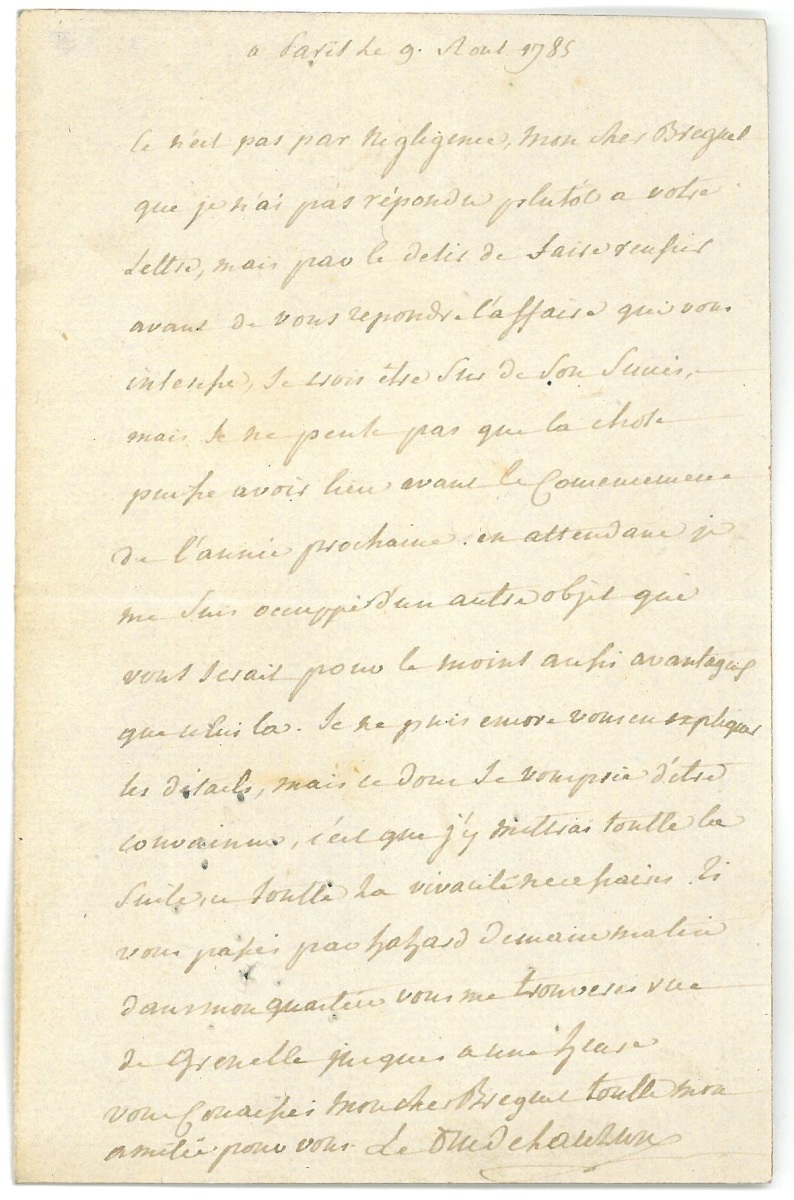 a Paris Le 9. Aout 1785
Ce n'est pas par Negligence, Mon cher Breguet
que je n'ai pas répondu plutôt a votre
Lettre, mais par le desir de faire reussir
avant de vous repondre l'affaire qui vous
interesse, Je crois être Sur de Son Succès,
mais Je ne pense pas que la chose
puisse avoir lieu avant le Comencement
de l'année prochaine. en attendant je
me Suis occuppé d'un autre objet qui
vous Serait pour le moins aussi avantageux
que celui la. Je ne puis encore vous en expliquer
les détails, mais ce dont Je vous prie d'etre
convaincu, c'est que j'y mettrai toutte la
Suite et toutte La vivacité necessaires. Si
vous passés par hazard demain matin
dans mon quartier vous me trouverés rue
de Grenelle jusques a une heure
vous Conaissés Mon cher Breguet toutte mon
amitié pour vous. Le Duc de chaulnes